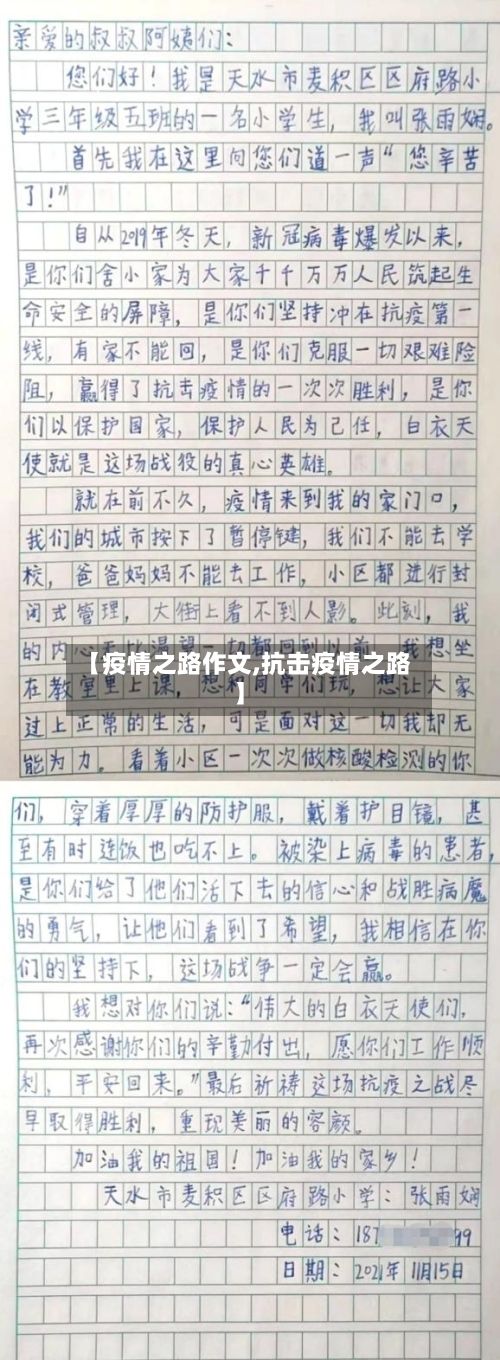 亲爱的叔叔阿姨们：
您们好！我是天水市麦积区区府路小
学三年级五班的一名小学生，我叫张雨娴。
首先我在这里向您们道一声“您辛苦
了！”
自从2019年冬天，新冠病毒爆发以来，
是你们舍小家为大家千千万万人民筑起生
命安全的屏障，是你们坚持冲在抗疫第一
线，有家不能回，是你们克服一切艰难险
阻，赢得了抗击疫情的一次次胜利，是你
们以保护国家，保护人民为己任，白衣天
使就是这场战役的真心英雄。
就在前不久，疫情来到我的家门口，
我们的城市按下了暂停键，我们不能去学
校，爸爸妈妈不能去工作，小区都进行封
闭式管理，大街上看不到人影。此刻，我
的内心 渴望一切都回到以前，我想坐
【疫情之路作文,抗击疫情之路
】
在教室里上课，想和同学们玩，想让大家
过上正常的生活，可是面对这一切我却无
能为力。看着小区一次次做核酸检测的你
们，穿着厚厚的防护服，戴着护目镜，甚
至有时连饭也吃不上。被染上病毒的患者，
是你们给了他们活下去的信心和战胜病魔
的勇气，让他们看到了希望，我相信在你
们的坚持下，这场战争一定会赢。
我想对你们说：“伟大的白衣天使们，
再次感谢你们的辛勤付出，愿你们工作顺
利，平安回来。”最后祈祷这场抗疫之战尽
早取得胜利，重现美丽的容颜。
加油我的祖国！加油我的家乡！
天水市麦积区区府路小学：张雨娴
电话：187 99
日期：2021年11月15日